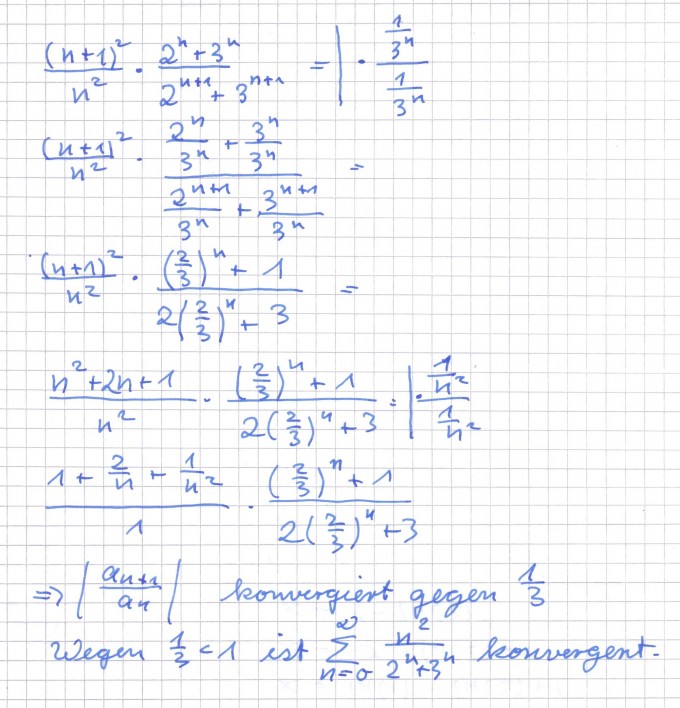 (n+1)²/n² · (2ⁿ+3ⁿ)/(2ⁿ⁺¹+3ⁿ⁺¹) = | · (1/3ⁿ)/(1/3ⁿ)
(n+1)²/n² · (2ⁿ/3ⁿ + 3ⁿ/3ⁿ)/(2ⁿ⁺¹/3ⁿ + 3ⁿ⁺¹/3ⁿ) =
(n+1)²/n² · ((2/3)ⁿ + 1)/(2(2/3)ⁿ + 3) =
(n²+2n+1)/n² · ((2/3)ⁿ + 1)/(2(2/3)ⁿ + 3) = | · (1/n²)/(1/n²)
(1 + 2/n + 1/n²)/1 · ((2/3)ⁿ + 1)/(2(2/3)ⁿ + 3)
=> |aₙ₊₁/aₙ| konvergiert gegen 1/3
Wegen 1/3 < 1 ist ∑_{n=0}^{∞} n²/(2ⁿ+3ⁿ) konvergent.